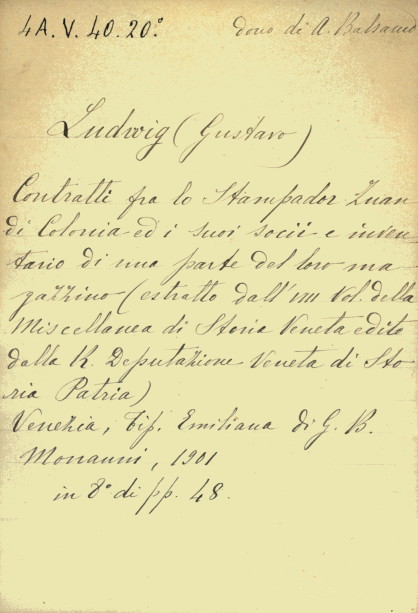 4A.V.40.20.°
dono di A. Balsamo
Ludwig (Gustavo)
Contratti fra lo Stampador Zuan
di Colonia ed i suoi socii e inven
tario di una parte del loro ma
gazzino (estratto dall' VIII Vol. della
Miscellanea di Storia Veneta edito
dalla R. Deputazione Veneta di Sto
ria Patria)
Venezia, Tip. Emiliana di G. B.
Monauni, 1901
in 8° di pp. 48.